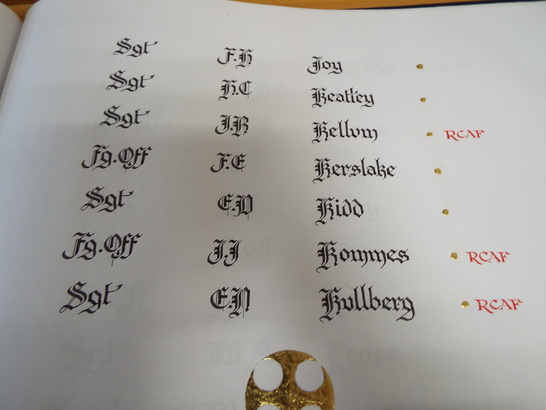 Sgt F.H Joy
Sgt K.C Keatley
Sgt J.R Kellum RCAF
Fg.Off F.E Kerslake
Sgt E.D Kidd
Fg.Off J.J Kommes RCAF
Sgt E.N Kullberg RCAF